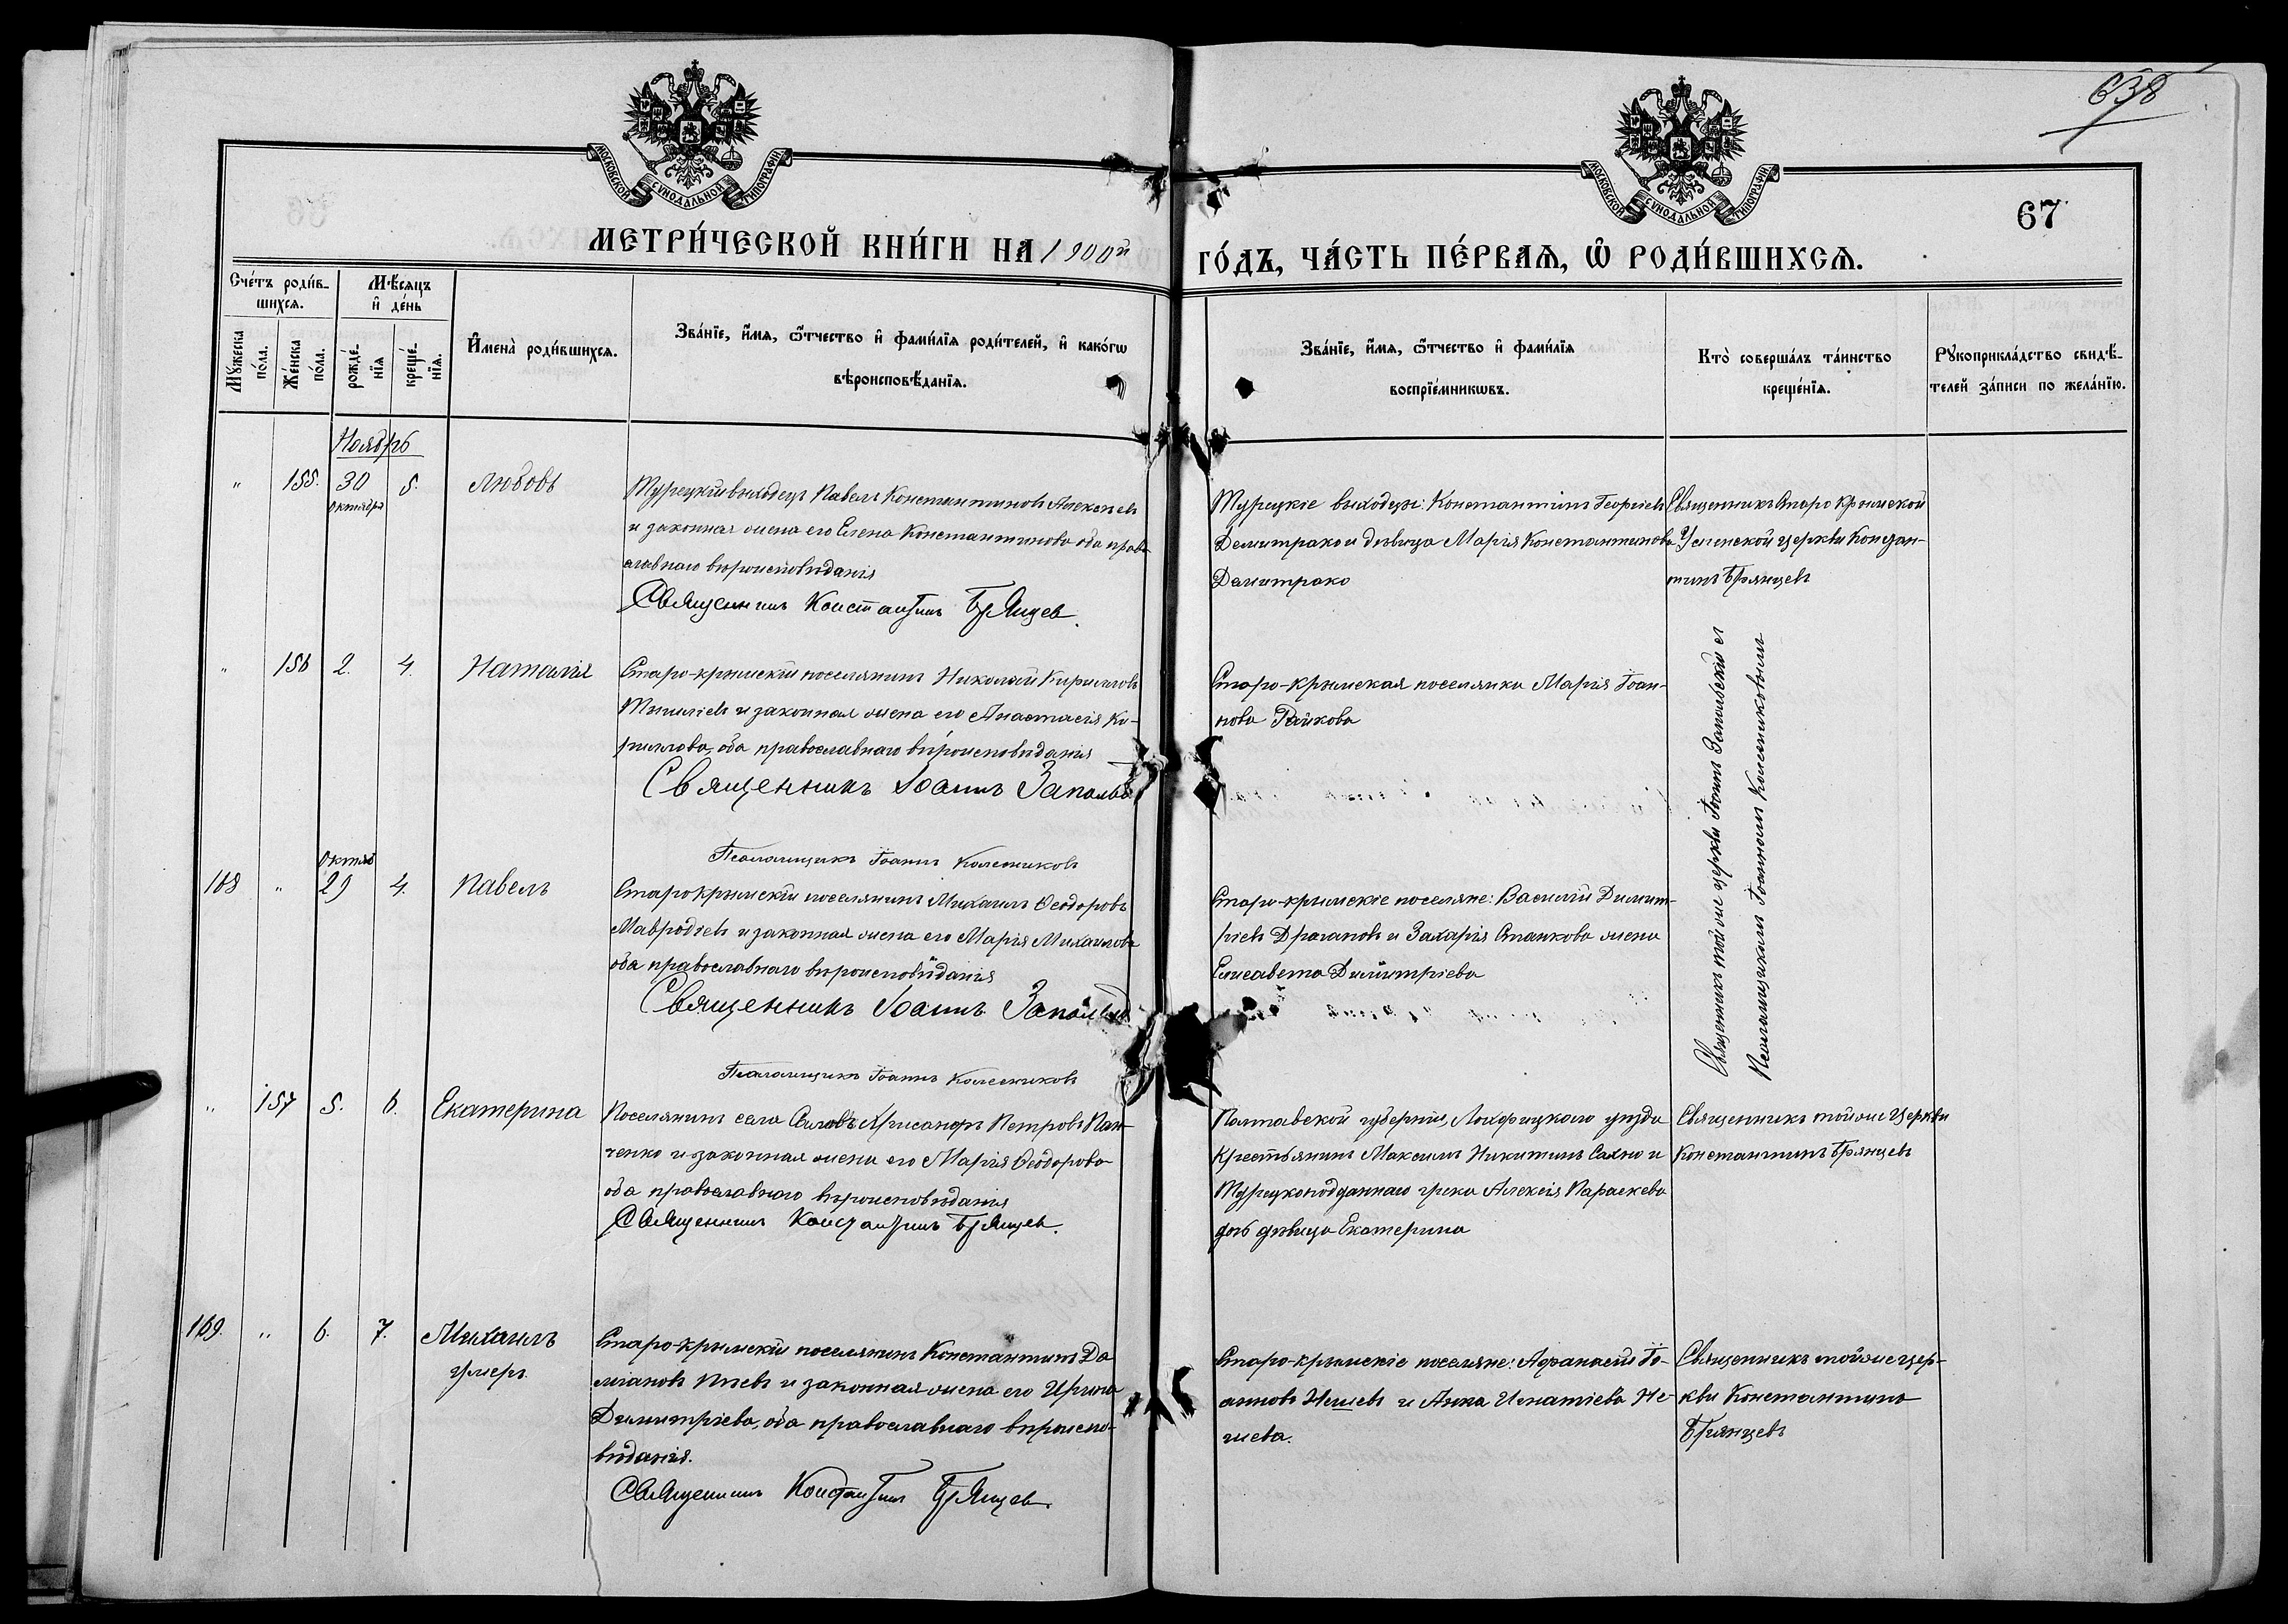 638
67
МОСКОВСКОЙ СУНОДАЛЬНОЙ ТИПОГРАФІИ
МОСКОВСКОЙ СУНОДАЛЬНОЙ ТИПОГРАФІИ
МЕТРИ́ЧЕСКОЙ КНИ́ГИ НА 1900й
ГО́ДЪ, ЧА́СТЬ ПЕ́РВАѦ, Ѡ҆ РОДИ́ВШИХСѦ.
Сче́тъ роди́в-
шихсѧ.
Мѣ́сѧцъ
и҆ де́нь
Мꙋ́жеска
по́ла.
Же́нска
по́ла.
рожде́-
нїѧ
креще́-
нїѧ.
И҆мена̀ роди́вшихсѧ.
Зва́нїе, и҆́мѧ, ѻ҆́тчество и҆ фами́лїѧ роди́телей, и҆ како́гѡ
вѣроисповѣ́данїѧ.
Зва́нїе, и҆́мѧ, ѻ҆́тчество и҆ фами́лїѧ
воспрїе́мникѡвъ.
Кто̀ соверша́лъ та́инство
креще́нїѧ.
Рꙋкоприкла́дство свидѣ́-
телей за́писи по жела́нїю.
Ноябрь
" 155. 30 октября 5. Любовь
Турецкій выходецъ Павелъ Константиновъ Алексѣевъ
и законная жена его Елена Константинова оба право
славнаго вѣроисповѣданія
Священникъ Константинъ Брянцев.
Турецкіе выходцы: Константинъ Георгіевъ
Демитрако и дѣвица Марія Константинова
Демитрако
Священникъ Старо Крымской
Успенской церкви Констан-
тинъ Брянцевъ
" 156 2. 4. Наталія
Старо-крымскій поселянинъ Николай Кирилловъ
и законная жена его Анастасія Ки-
риллова, оба православнаго вѣроисповѣданія
Священникъ Іоаннъ Запольс
Псаломщикъ Іоаннъ Колесниковъ
Старо-крымская поселянка Марія Іоан-
нова Райкова
Священникъ той же церкви Іоаннъ Запольскій съ
Псаломщикомъ Іоанномъ Колесниковымъ
168 " Октяб 29 4. Павелъ
Старокрымскій поселянинъ Михаилъ Ѳеодоровъ
Мавродіевъ и законная жена его Марія Михаилова
оба православнаго вѣроисповѣданія
Священникъ Іоаннъ Запольс
Псаломщикъ Іоаннъ Колесниковъ
Старо-крымскіе поселяне: Василій Димит-
ріевъ Драгановъ и Захарія Станкова жена
Елисавета Димитріева
" 157 5. 6. Екатерина
Поселянинъ села Хрисанфъ Петровъ Пан-
ченко и законная жена его Марія Ѳеодорова
оба православнаго вѣроисповѣданія
Священникъ Константинъ Брянцев.
Полтавской губерніи, Лохвицкаго уѣзда
крестьянинъ Максимъ Никитинъ Сахно и
Турецкоподданнаго грека Алексія Параскева
дочь дѣвица Екатерина
Священникъ той же Церкви
Константинъ Брянцевъ
169. " 6. 7. Михаилъ
умеръ
Старо-крымскій поселянинъ Константинъ Да
міановъ и законная жена его Ирина
Димитріева, оба православнаго вѣроиспо-
вѣданія.
Священникъ Константинъ Брянцев.
Старо-крымскіе поселяне: Афанасій Іо-
анновъ Нешевъ и Анна Игнатіева Не-
шева.
Священникъ той же цер-
кви Константинъ
Брянцевъ